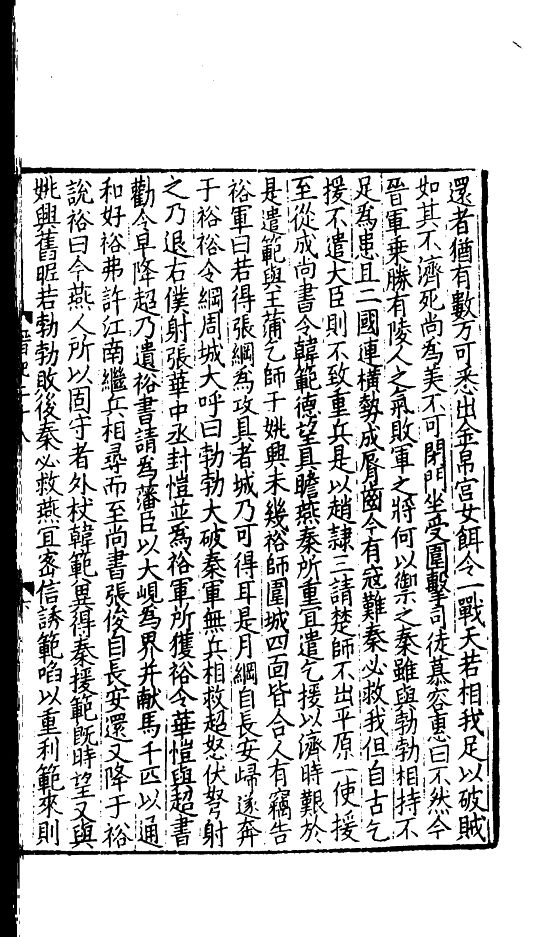 還者猶有數万可悉出金帛宮女餌令一戰天若相我足以破賊
如其不濟死尚為美不可閉門坐受圍擊司徒慕容惠曰不然今
晉軍乗勝有陵人之氣敗軍之將何以禦之秦雖與勃勃相持不
足為患且二國連橫勢成脣齒今有寇難秦必救我但自古乞
援不遣大臣則不致重兵是以趙隷三請楚師不出平原一使援
至從成尚書令韓範德望具瞻燕秦所重宜遣乞援以濟時艱於
是遣範與王蒲乞師于姚興未幾裕師圍城四面皆合人有竊告
裕軍曰若得張綱為攻具者城乃可得耳是月綱自長安歸遂奔
于裕裕令綱周城大呼曰勃勃大破秦軍無兵相救超怒伏弩射
之乃退右僕射張華中丞封愷並為裕軍所獲裕令華愷與超書
勸令早降超乃遺裕書請為藩臣以大峴為界并献馬千匹以通
和好裕弗許江南繼兵相尋而至尚書張俊自長安還又降于裕
說裕曰今燕人所以固守者外杖韓範兾得秦援範旣時望又與
姚興舊昵若勃勃敗後秦必救燕宜密信誘範啗以重利範來則